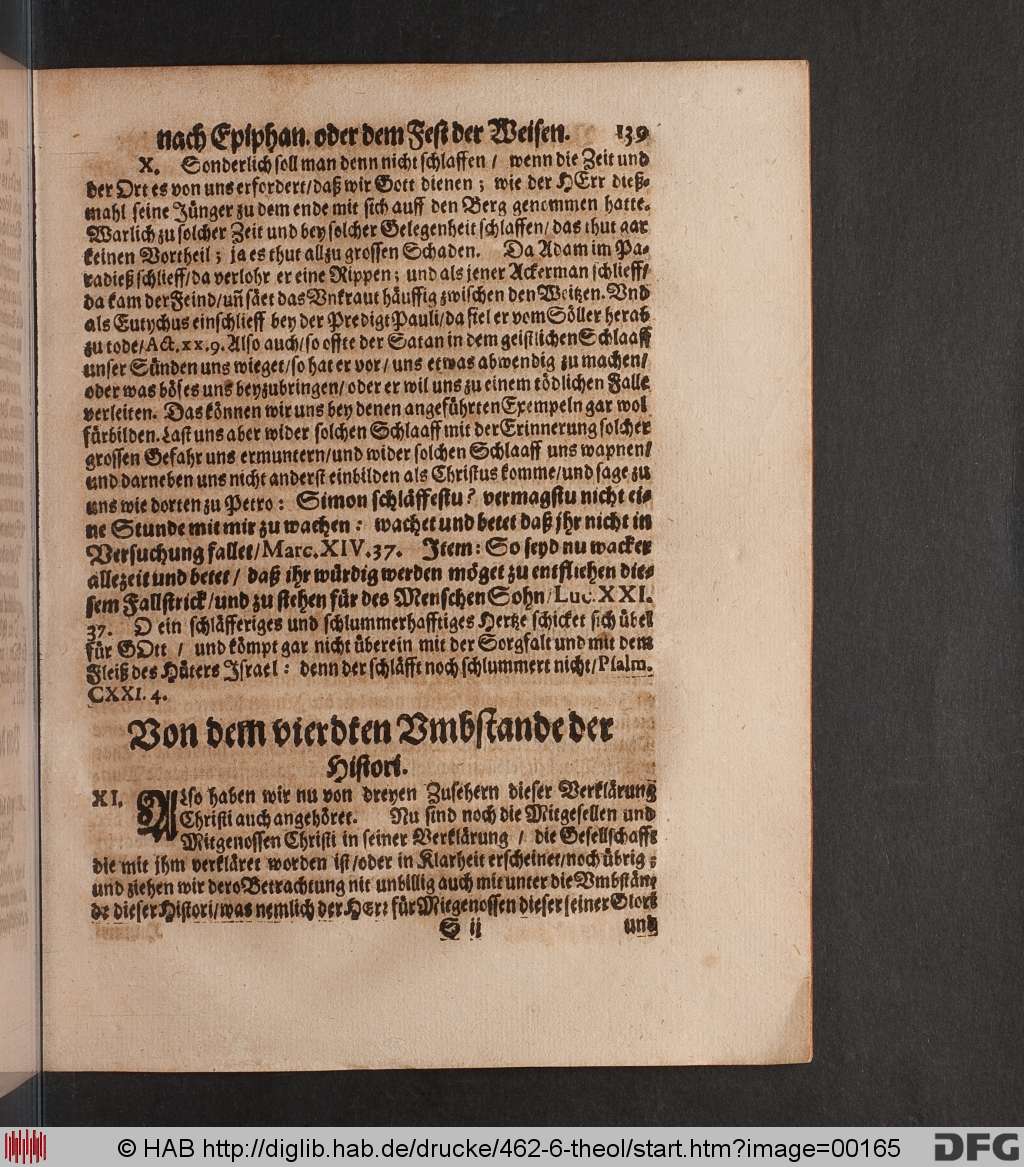 nach Epiphan. oder dem Fest der Weisen. 139
X. Sonderlich soll man denn nicht schlaffen / wenn die Zeit und
der Ort es von uns erfordert/daß wir Gott dienen; wie der HErr dieß-
mahl seine Jünger zu dem ende mit sich auff den Berg genommen hatte.
Warlich zu solcher Zeit und bey solcher Gelegenheit schlaffen/das thut gar
keinen Vortheil; ja es thut allzu grossen Schaden. Da Adam im Pa-
radieß schlieff/da verlohr er eine Rippen; und als jener Ackerman schlieff/
da kam der Feind/uñ säet das Vnkraut häuffig zwischen den Weitzen. Vnd
als Eutychus einschlieff bey der Predigt Pauli/da fiel er vom Söller herab
zu tode/Act.xx.9. Also auch/so offte der Satan in dem geistlichen Schlaaff
unser Sünden uns wieget/so hat er vor/uns etwas abwendig zu machen/
oder was böses uns beyzubringen/oder er wil uns zu einem tödlichen Falle
verleiten. Das können wir uns bey denen angeführten Exempeln gar wol
fürbilden. Last uns aber wider solchen Schlaaff mit der Erinnerung solcher
grossen Gefahr uns ermuntern/und wider solchen Schlaaff uns wapnen/
und darneben uns nicht anderst einbilden als Christus komme/und sage zu
uns wie dorten zu Petro: Simon schläffestu? vermagstu nicht ei-
ne Stunde mit mir zu wachen: wachet und betet daß jhr nicht in
Versuchung fallet/Marc.XIV.37. Item: So seyd nu wacker
allezeit und betet/ daß ihr würdig werden möget zu entfliehen die-
sem Fallstrick/und zu stehen für des Menschen Sohn/Luc.XXI.
37. O ein schläfferiges und schlummerhafftiges Hertze schicket sich übel
für GOtt / und kömpt gar nicht überein mit der Sorgfalt und mit dem
Fleiß des Hüters Israel: denn der schläfft noch schlummert nicht/Psalm.
CXXI.4.
Von dem vierdten Vmbstande der
Histori.
XI. Also haben wir nu von dreyen Zusehern dieser Verklärung
Christi auch angehöret. Nu sind noch die Mitgesellen und
Mitgenossen Christi in seiner Verklärung / die Gesellschafft
die mit jhm verkläret worden ist/oder in Klarheit erscheinet/noch übrig;
und ziehen wir dero Betrachtung nit unbillig auch mit unter die Vmbstän-
de dieser Histori/was nemlich der HErr für Mitgenossen dieser seiner Glori
S ij und
© HAB http://diglib.hab.de/drucke/462-6-theol/start.htm?image=00165 DFG